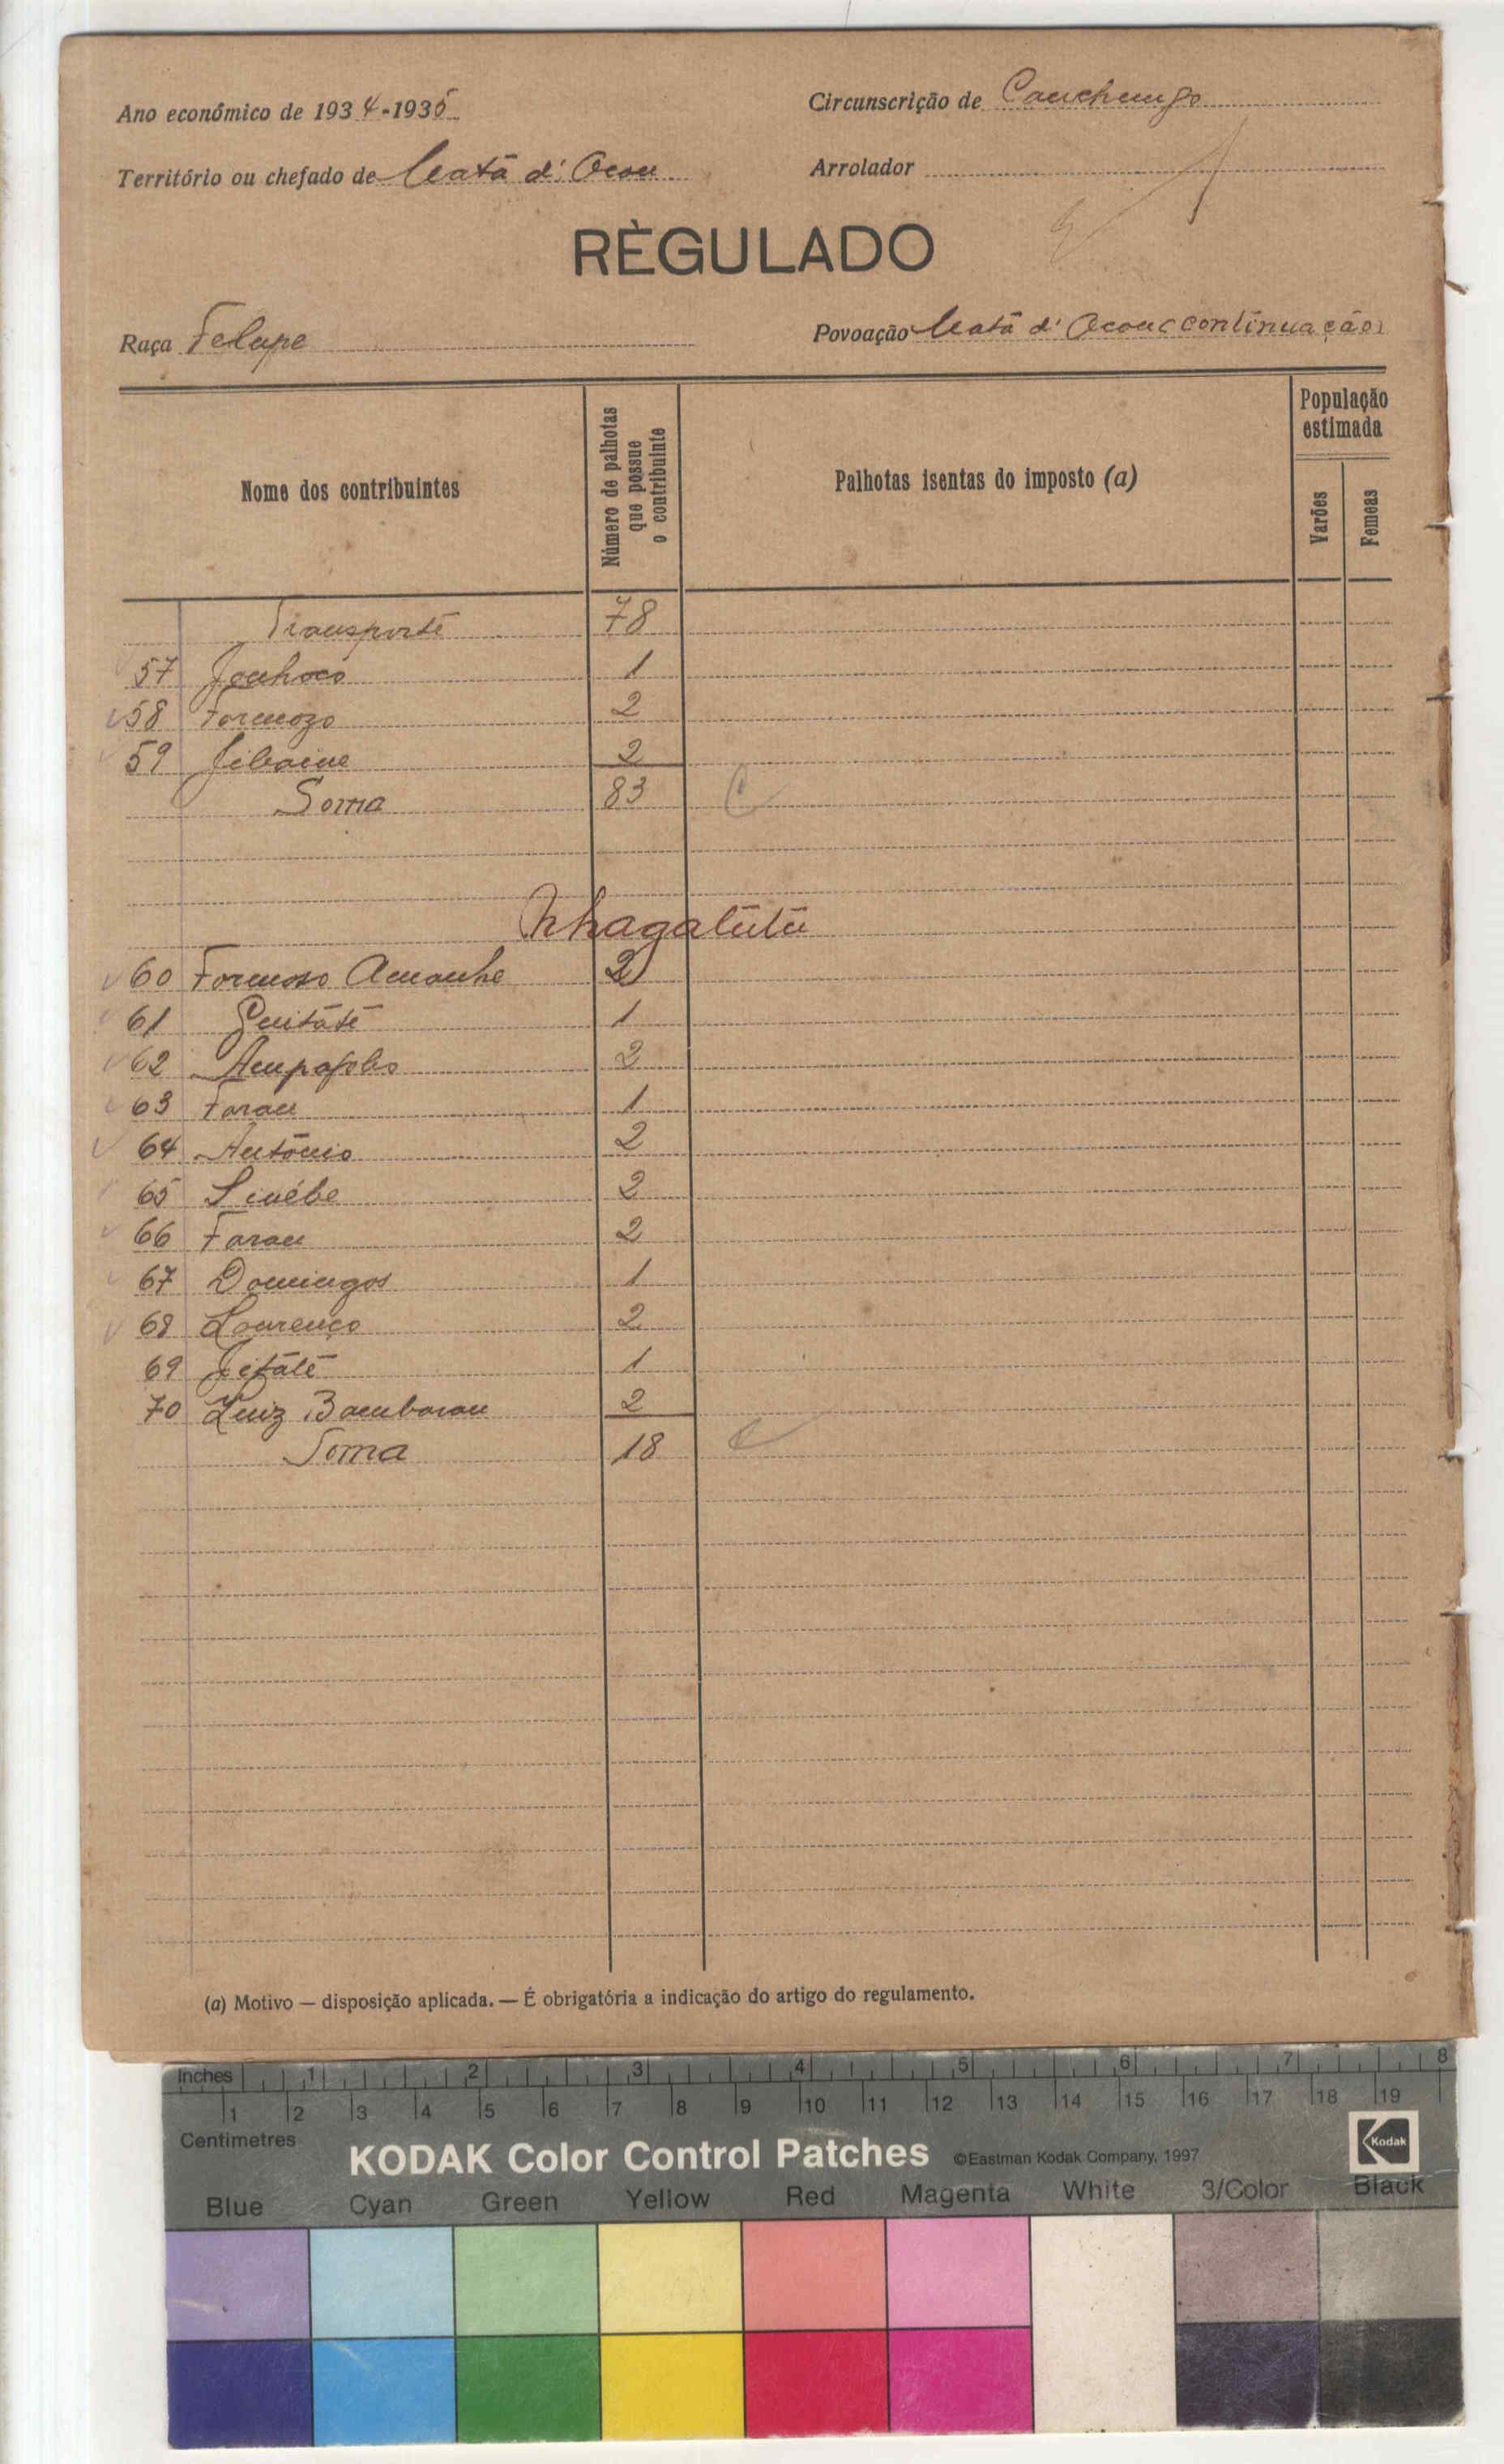 Ano económico de 1934-1935
Circunscrição de Canchungo
Território ou chefado de Catā d'Ocou
Arrolador
RÈGULADO
Raça Felupe
Povoação Catā d'Ocou (continuação)
Nome dos contribuintes
Número de palhotas que possue o contribuinte
Palhotas isentas do imposto (a)
População estimada
Varões
Femeas
Transporte 78
57 1
58 Formozo 2
59 2
Soma 83
60 Formoso Amanhe 2
61 1
62 2
63 Farau 1
64 António 2
65 2
66 Farau 2
67 Domingos 1
68 Lourenço 2
69 1
70 Luiz 2
Soma 18
(a) Motivo — disposição aplicada. — É obrigatória a indicação do artigo do regulamento.
Inches 1 2 3 4 5 6 7 8
1 2 3 4 5 6 7 8 9 10 11 12 13 14 15 16 17 18 19
Centimetres
KODAK Color Control Patches ©Eastman Kodak Company, 1997
Kodak
Blue Cyan Green Yellow Red Magenta White 3/Color Black